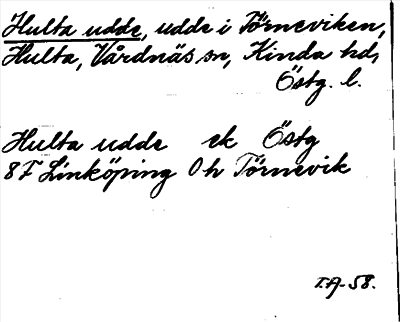 Hulta udde, udde i Törneviken,
Hulta, Vårdnäs sn, Kinda hd,
Östg. l.
Hulta udde ek Östg
8 F Linköping 0 h Törnevik
T.A-58.